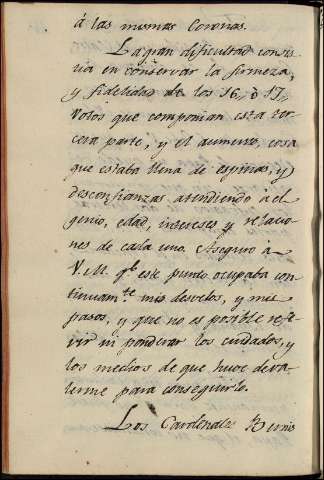 á las mismas Coronas.
La gran dificultad consis
tia en conservar la firmeza,
y fidelidad de los 16, ó 17,,
Votos que componian esta ter
cera parte, y el aumento, cosa
que estaba llena de espinas, y
desconfianzas atendiendo á el
genio, edad, intereses y relacio
nes de cada uno. Aseguro á
V. M. qe. este punto ocupaba con
tinuamte. mis desvelos, y mis
pasos, y que no es posible refe
rir ni ponderar los cuidados, y
los medios de que huve de va
lerme para conseguirlo.
Los Cardenales Bernis